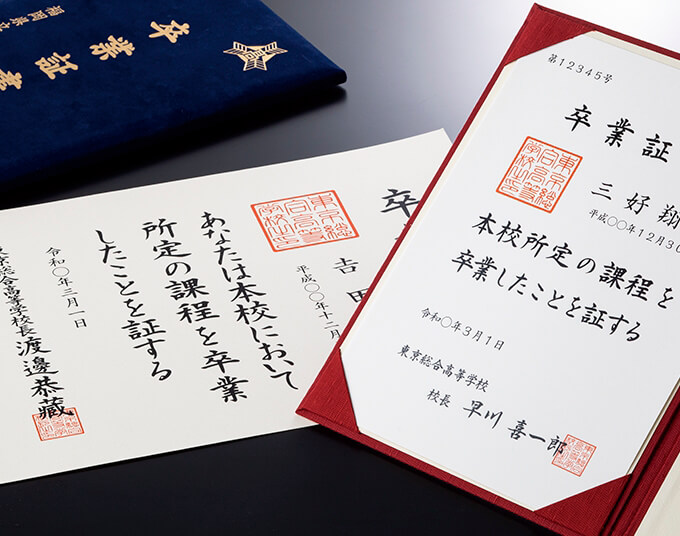 福岡県立
卒業証書
高
卒
吉田
平成〇〇年十二月
あなたは本校において
所定の課程を卒業
したことを証する
令和〇年三月一日
東京総合高等学校長 渡邊恭藏
第12345号
卒業証
三好翔
平成〇〇年12月30
本校所定の課程を
卒業したことを証する
令和〇年3月1日
東京総合高等学校
校長 早川喜一郎